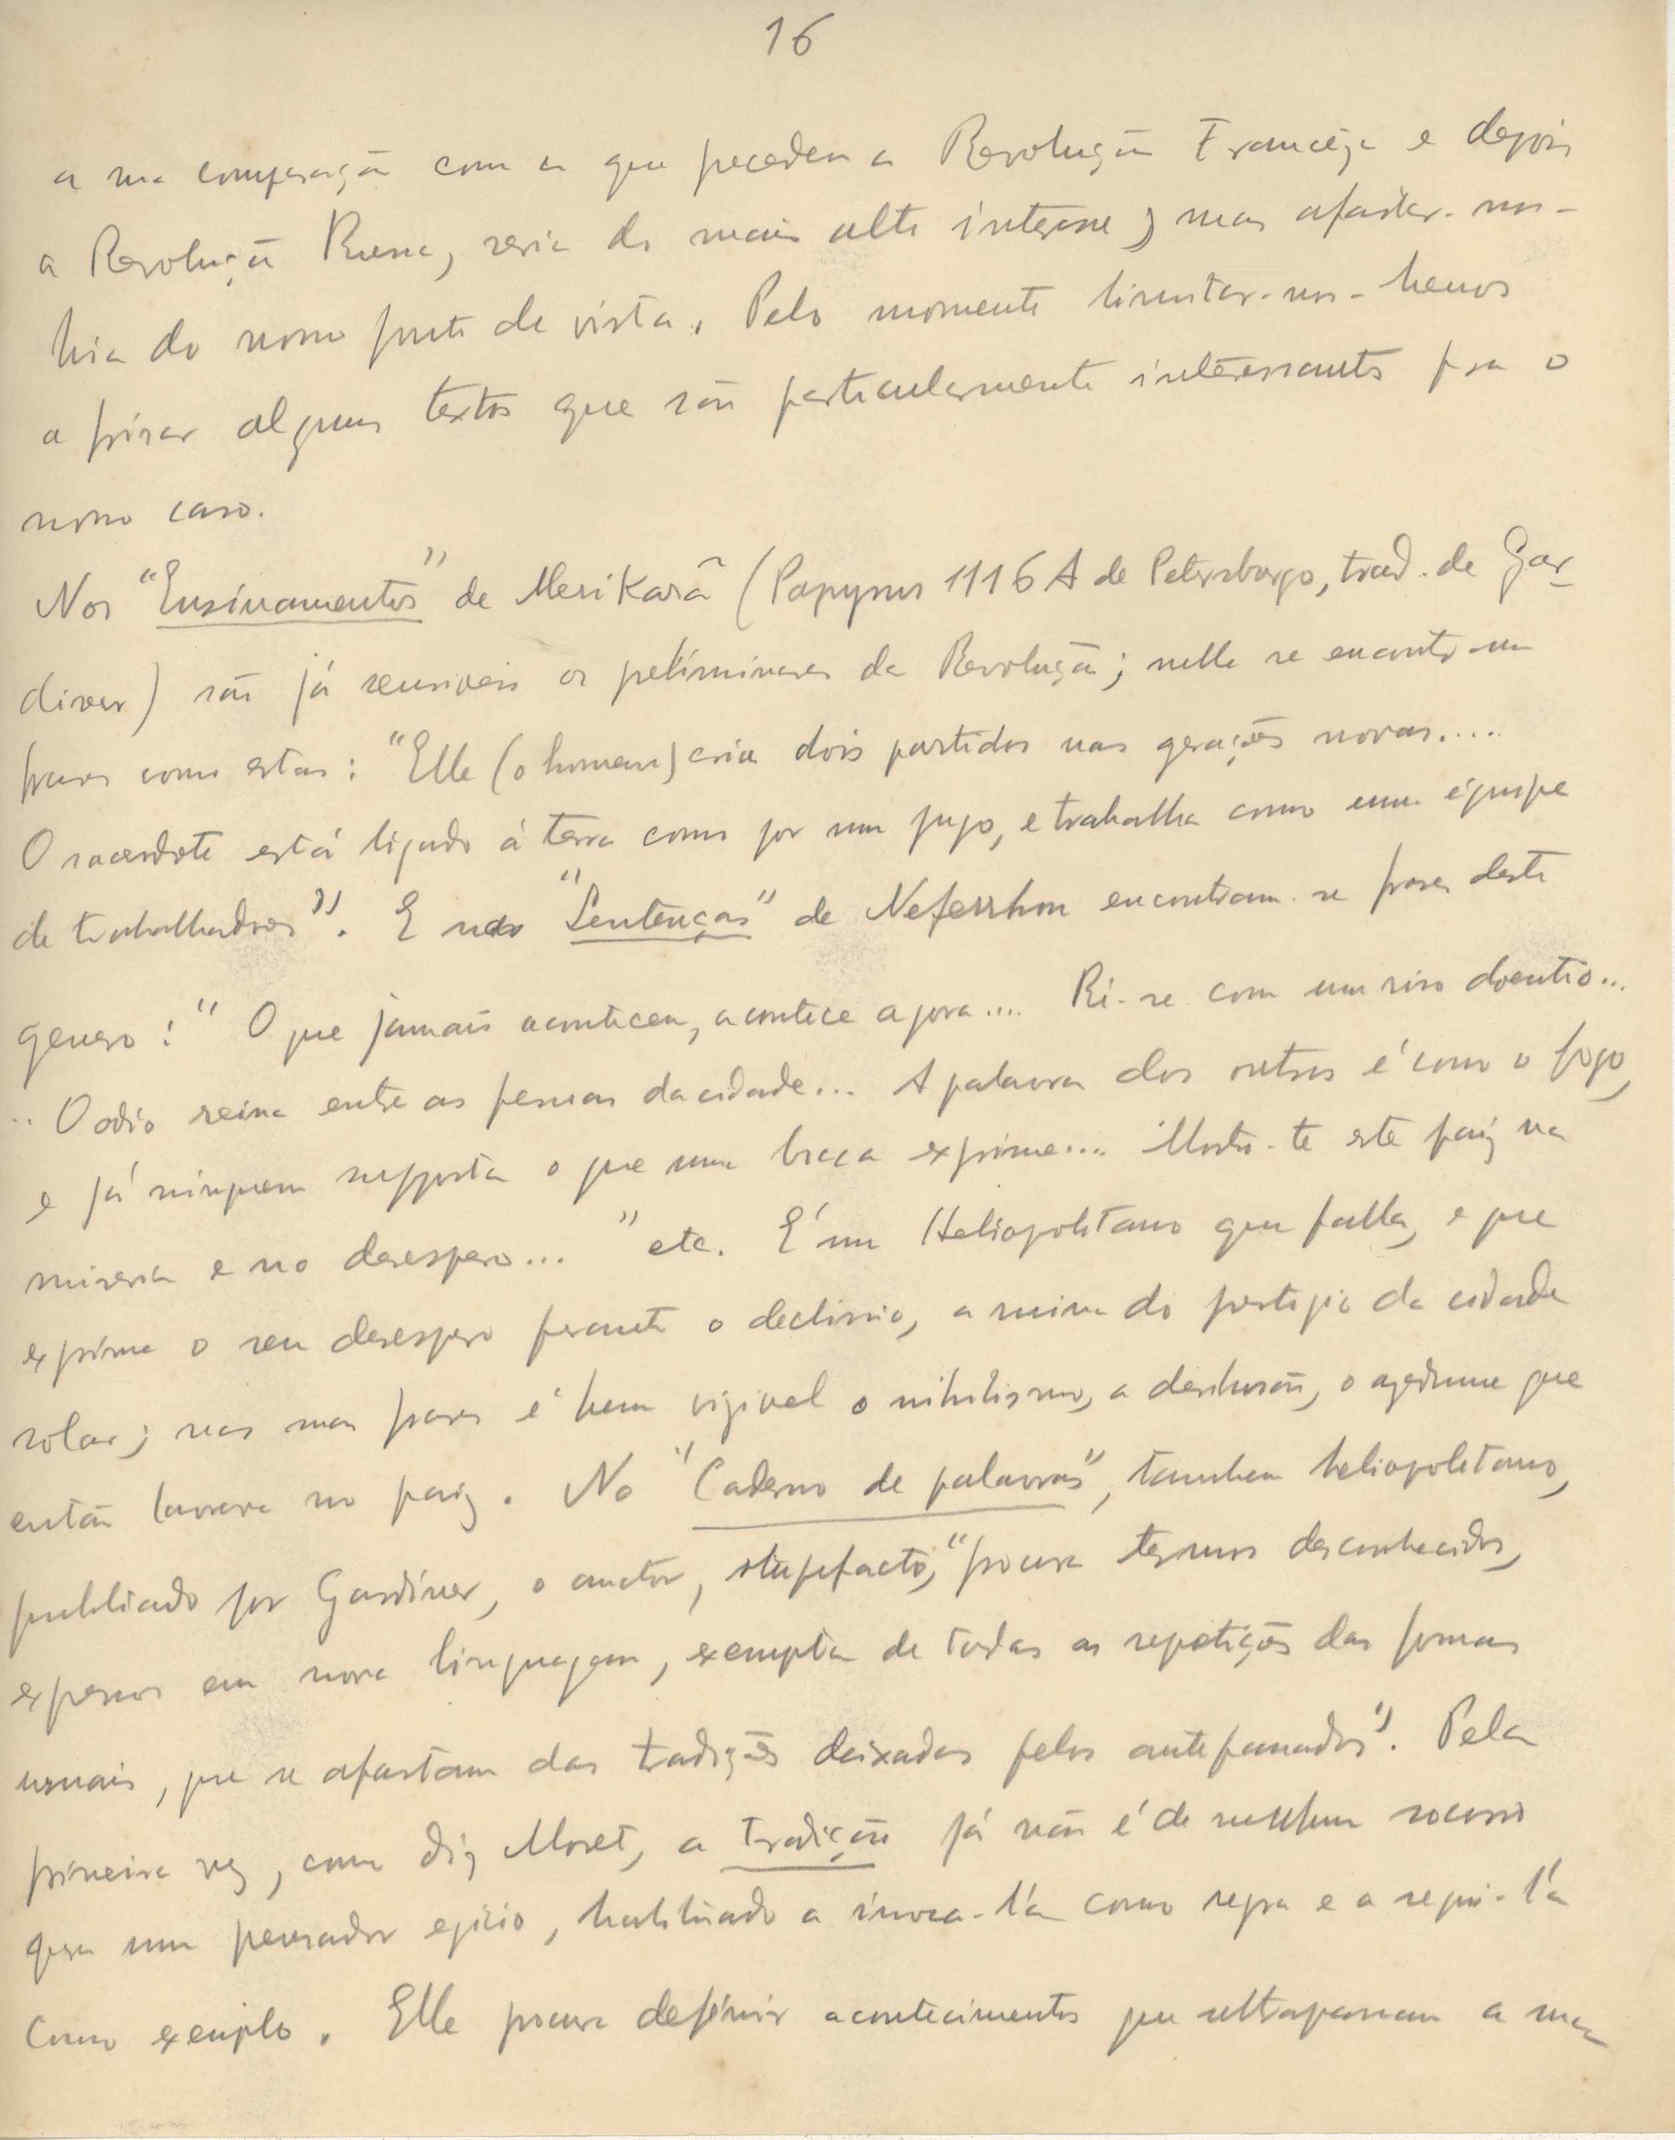 16
a sua comparação com a que precedeu a Revolução Franceza e depois
a Revolução Russa, seria do mais alto interesse; mas afastar-nos-
hia do nosso ponto de vista. Pelo momento limitar-nos-hemos
a frisar alguns textos que são particularmente interessantes para o
nosso caso.
Nos "Ensinamentos" de Merikarâ (Papyrus 1116 A de Petersburgo, trad. de Gar-
diner) são já sensiveis os preliminares da Revolução; nelle se encontram
frases como estas: "Elle (o homem) cria dois partidos nas gerações novas....
O sacerdote está ligado á terra como por um jugo, e trabalha como uma équipe
de trabalhadores". E nas "Sentenças" de Neferrhou encontram-se frases deste
genero: "O que jamais aconteceu, acontece agora.... Ri-se com um riso doentio...
.. O odio reina entre as pessoas da cidade... A palavra dos outros é como o fogo,
e já ninguem supporta o que uma boca exprime... Mostro-te este paiz na
miseria e no desespero..." etc. É um Heliopolitano que falla, e que
exprime o seu desespero perante o declinio, a ruina do prestigio da cidade
solar; nas suas frases é bem vizivel o nihilismo, a desilusão, o azedume que
então lavrava no paiz. No "Caderno de palavras", tambem heliopolitano,
publicado por Gardiner, o auctor, stupefacto, "procura termos desconhecidos,
expressos em nova linguagem, exempta de todas as repetições das formas
usuais, que se afastam das tradições deixadas pelos antepassados". Pela
primeira vez, como diz Moret, a tradição já não é de nenhum socorro
para um pensador egicio, habituado a invoca-l'a como regra e a segui-l'a
como exemplo. Elle procura definir acontecimentos que ultrapassam a sua